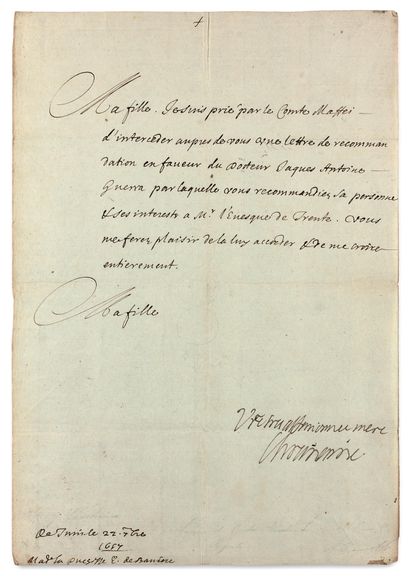 +
Ma fille. Je suis prié par le Comte Maffei
d'interceder aupres de vous une lettre de recomman
dation en faveur du Docteur Jaques Antoine
Guerra par laquelle vous recommandiez sa personne
& ses interests a Mr. l'Evesque de Trente. Vous
me ferez plaisir de la luy accorder & de me croire
entierement.
Ma fille
Vre tres affectionnee mere
Chrestienne
De Turin le 22. 7bre
1657
Made la Duchsse E. de Baviere